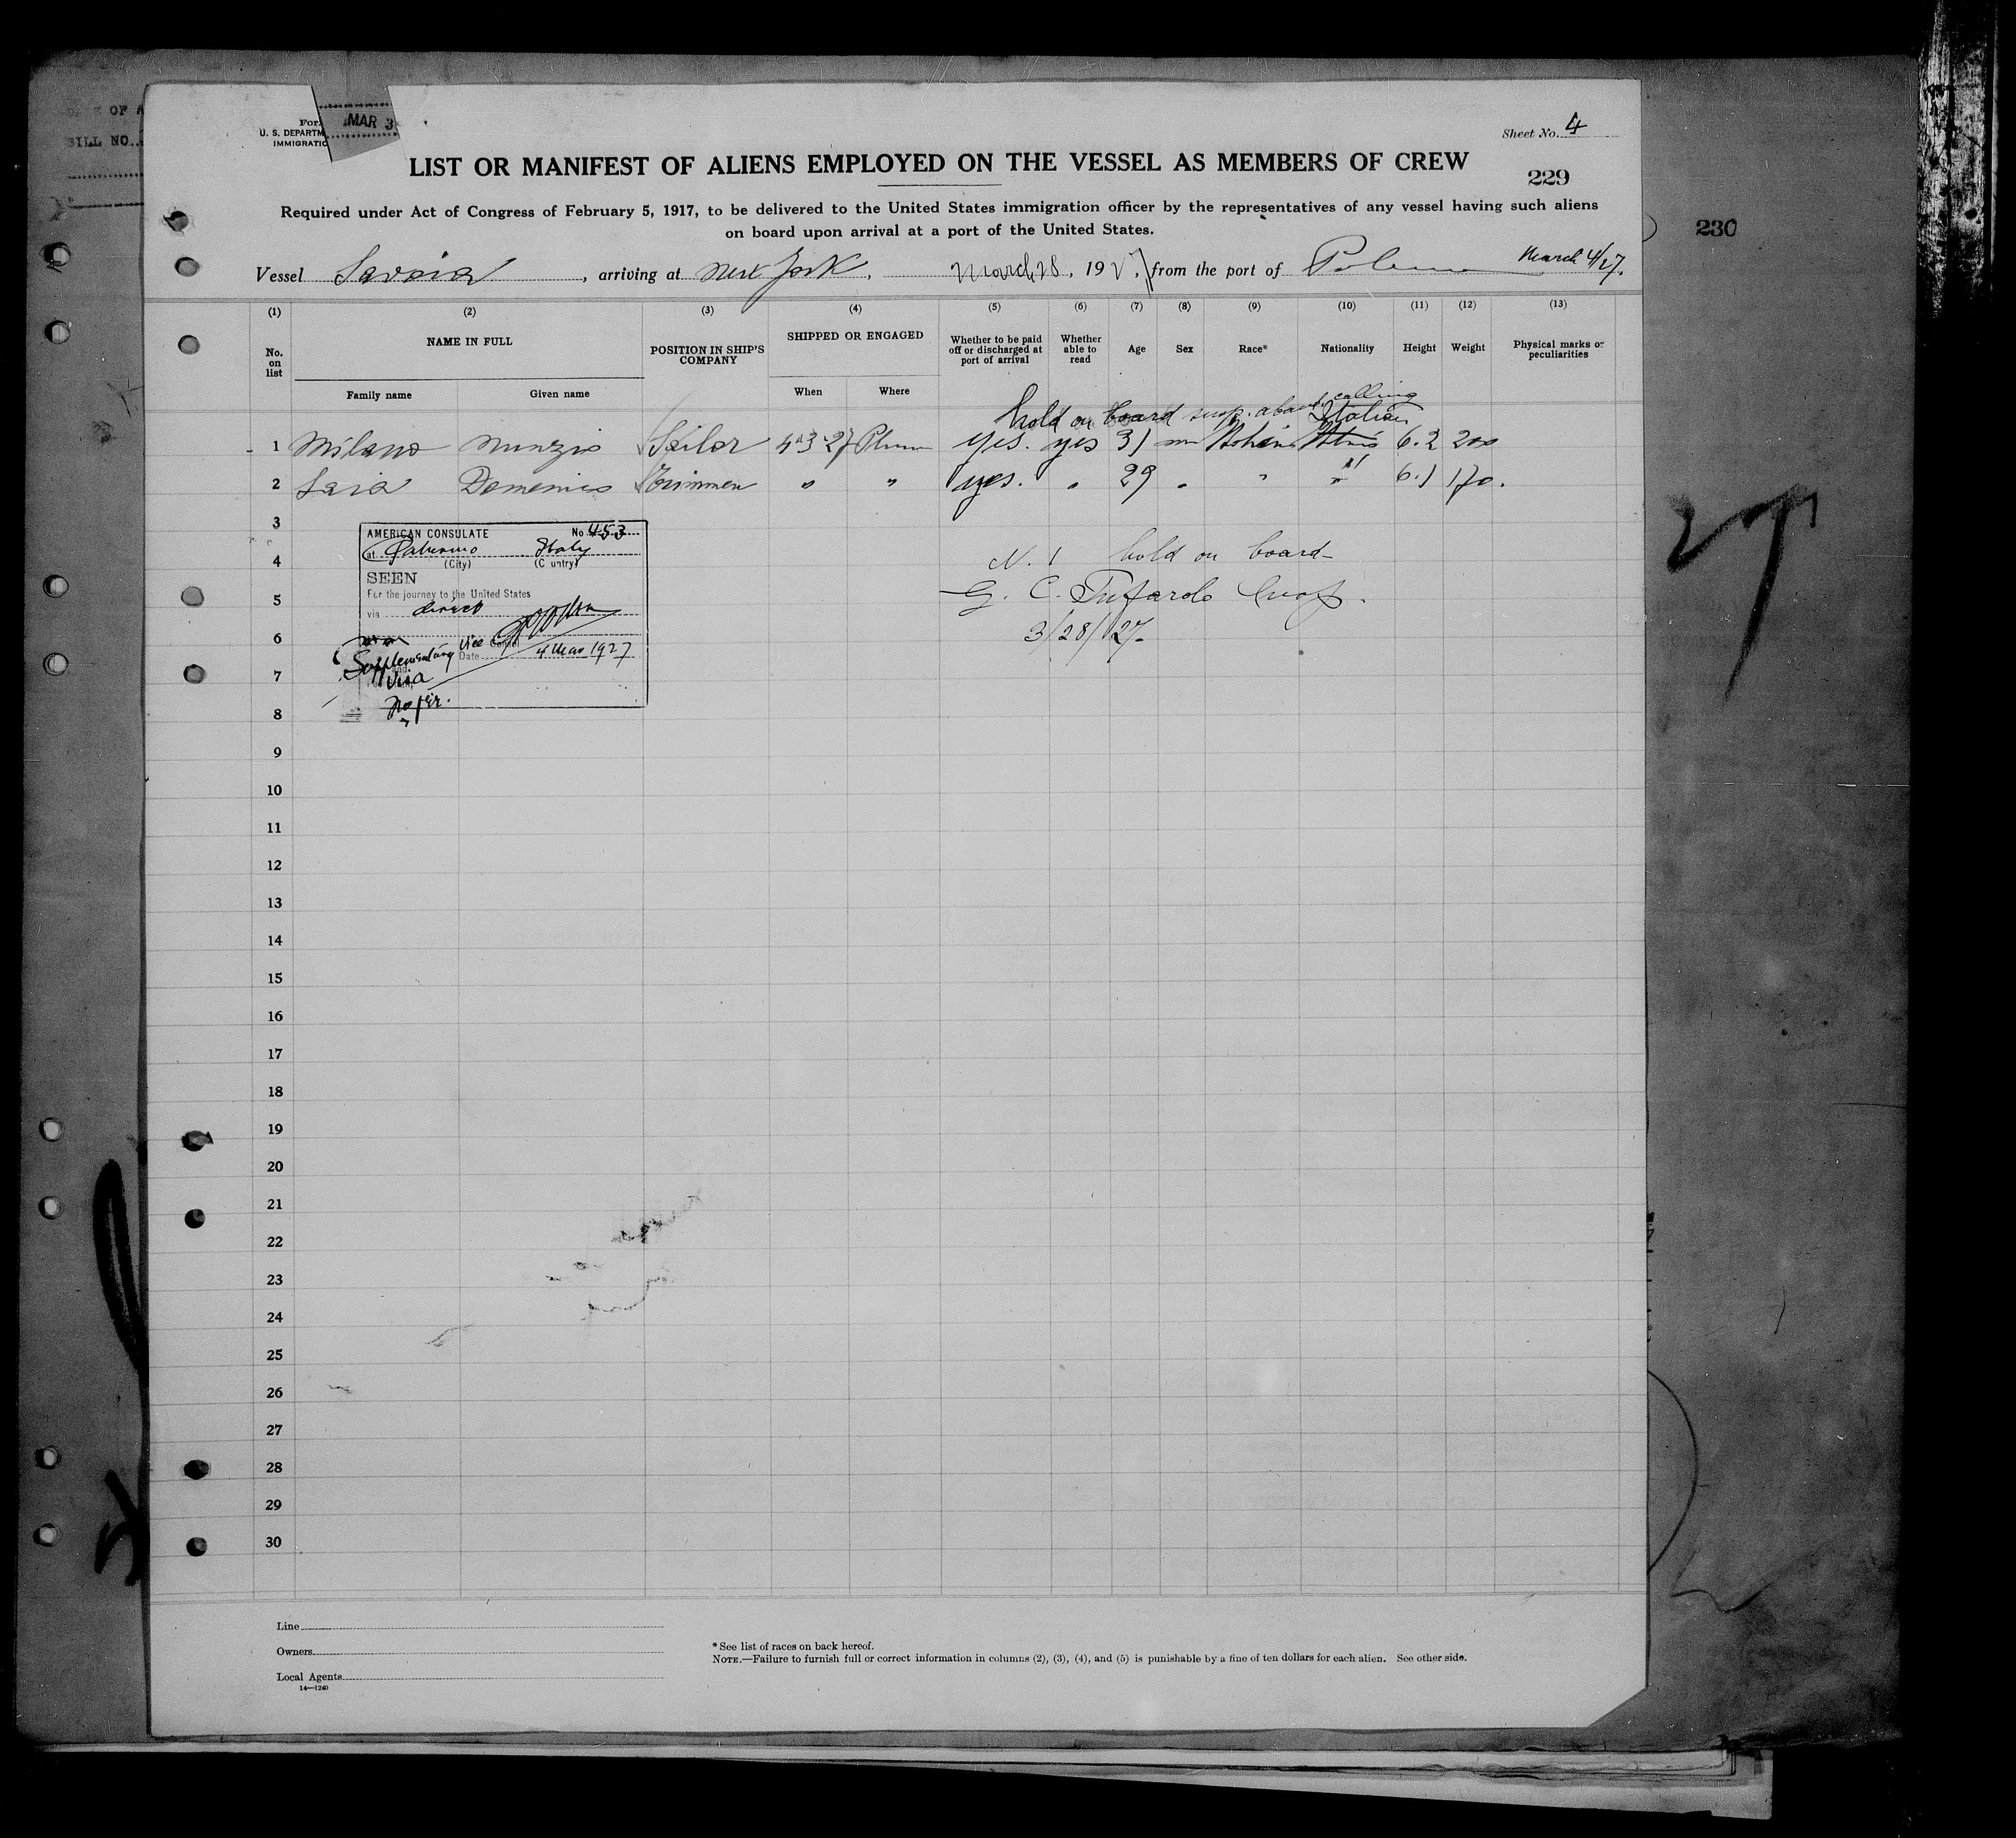 OF A
BILL NO.
For
U. S. DEPARTM
IMMIGRATIO
MAR 3
Sheet No. 4
LIST OR MANIFEST OF ALIENS EMPLOYED ON THE VESSEL AS MEMBERS OF CREW
229
230
Required under Act of Congress of February 5, 1917, to be delivered to the United States immigration officer by the representatives of any vessel having such aliens
on board upon arrival at a port of the United States.
Vessel Savoia, arriving at New York, March 28, 192 , from the port of March 4/27.
(1) (2) (3) (4) (5) (6) (7) (8) (9) (10) (11) (12) (13)
No. on list
NAME IN FULL
Family name Given name
POSITION IN SHIP'S COMPANY
SHIPPED OR ENGAGED
When Where
Whether to be paid off or discharged at port of arrival
Whether able to read
Age
Sex
Race*
Nationality
Height
Weight
Physical marks or peculiarities
hold on board susp. calling
Italian
1 Milano Nunzio Sailor 4 3 27 yes. yes 31 m 6.2 200
2 Saia Domenico Trimmer " " yes. " 29 " " " 6.1 170.
3
AMERICAN CONSULATE No. 453
at Palermo Italy
(City) (Country)
4
SEEN
For the journey to the United States
via direct
N. 1 hold on board
5
G. C. Tufarolo Insp.
6
3/28/27.
Vice Consul
Date 4 Mar 1927
Supplementary
Visa
No fee.
7
8
9
10
11
12
13
14
15
16
17
18
19
20
21
22
23
24
25
26
27
28
29
30
27
Line
Owners
Local Agents
14—1240
* See list of races on back hereof.
NOTE.—Failure to furnish full or correct information in columns (2), (3), (4), and (5) is punishable by a fine of ten dollars for each alien. See other side.